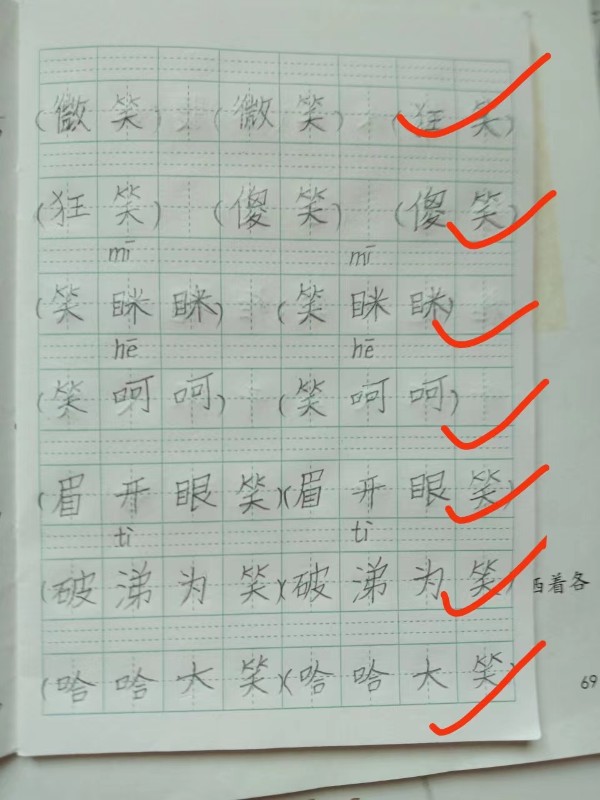 (微笑) (微笑) (狂笑)
(狂笑) (傻笑) (傻笑)
mī mī
(笑眯眯) (笑眯眯)
hē hē
(笑呵呵) (笑呵呵)
(眉开眼笑)(眉开眼笑)
tì tì
(破涕为笑)(破涕为笑)
(哈哈大笑)(哈哈大笑)
着各
69